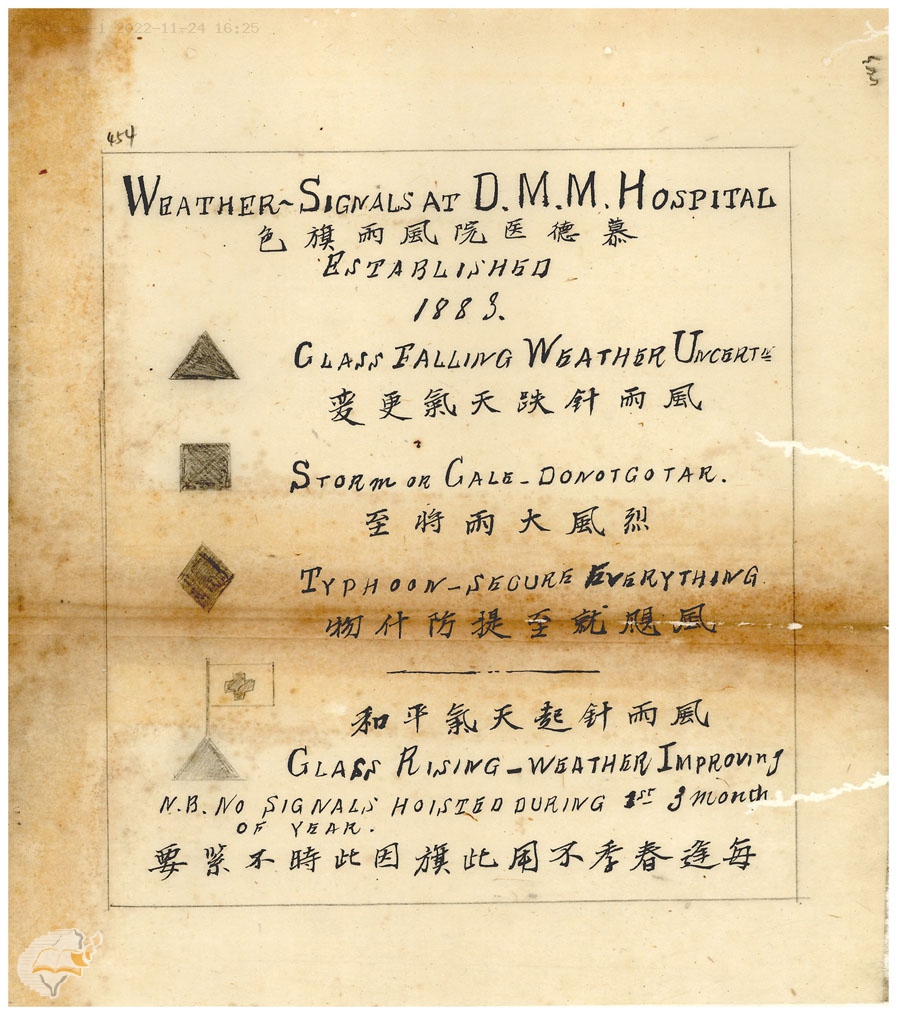 2022-11-24 16:25
454
WEATHER~SIGNALS AT D.M.M. HOSPITAL
慕德医院風雨旗色
ESTABLISHED
1883.
GLASS FALLING WEATHER UNCERT
風雨針跌天氣更変
STORM OR GALE - DO NOT GO TAR.
烈風大雨將至
TYPHOON - SECURE EVERYTHING
風颶就至提防什物
風雨針起天氣平和
GLASS RISING - WEATHER IMPROVING
N.B. NO SIGNALS HOISTED DURING 1ST 3 month
OF YEAR.
每逢春季不用此旗因此時不緊要